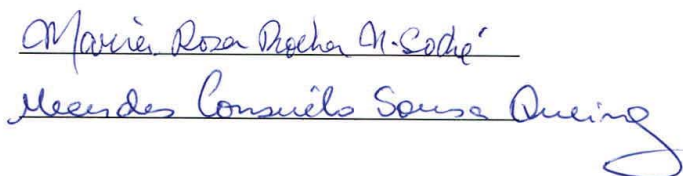 Maria Rosa Rocha N. Sodré
Consuélo Sousa Queiroz